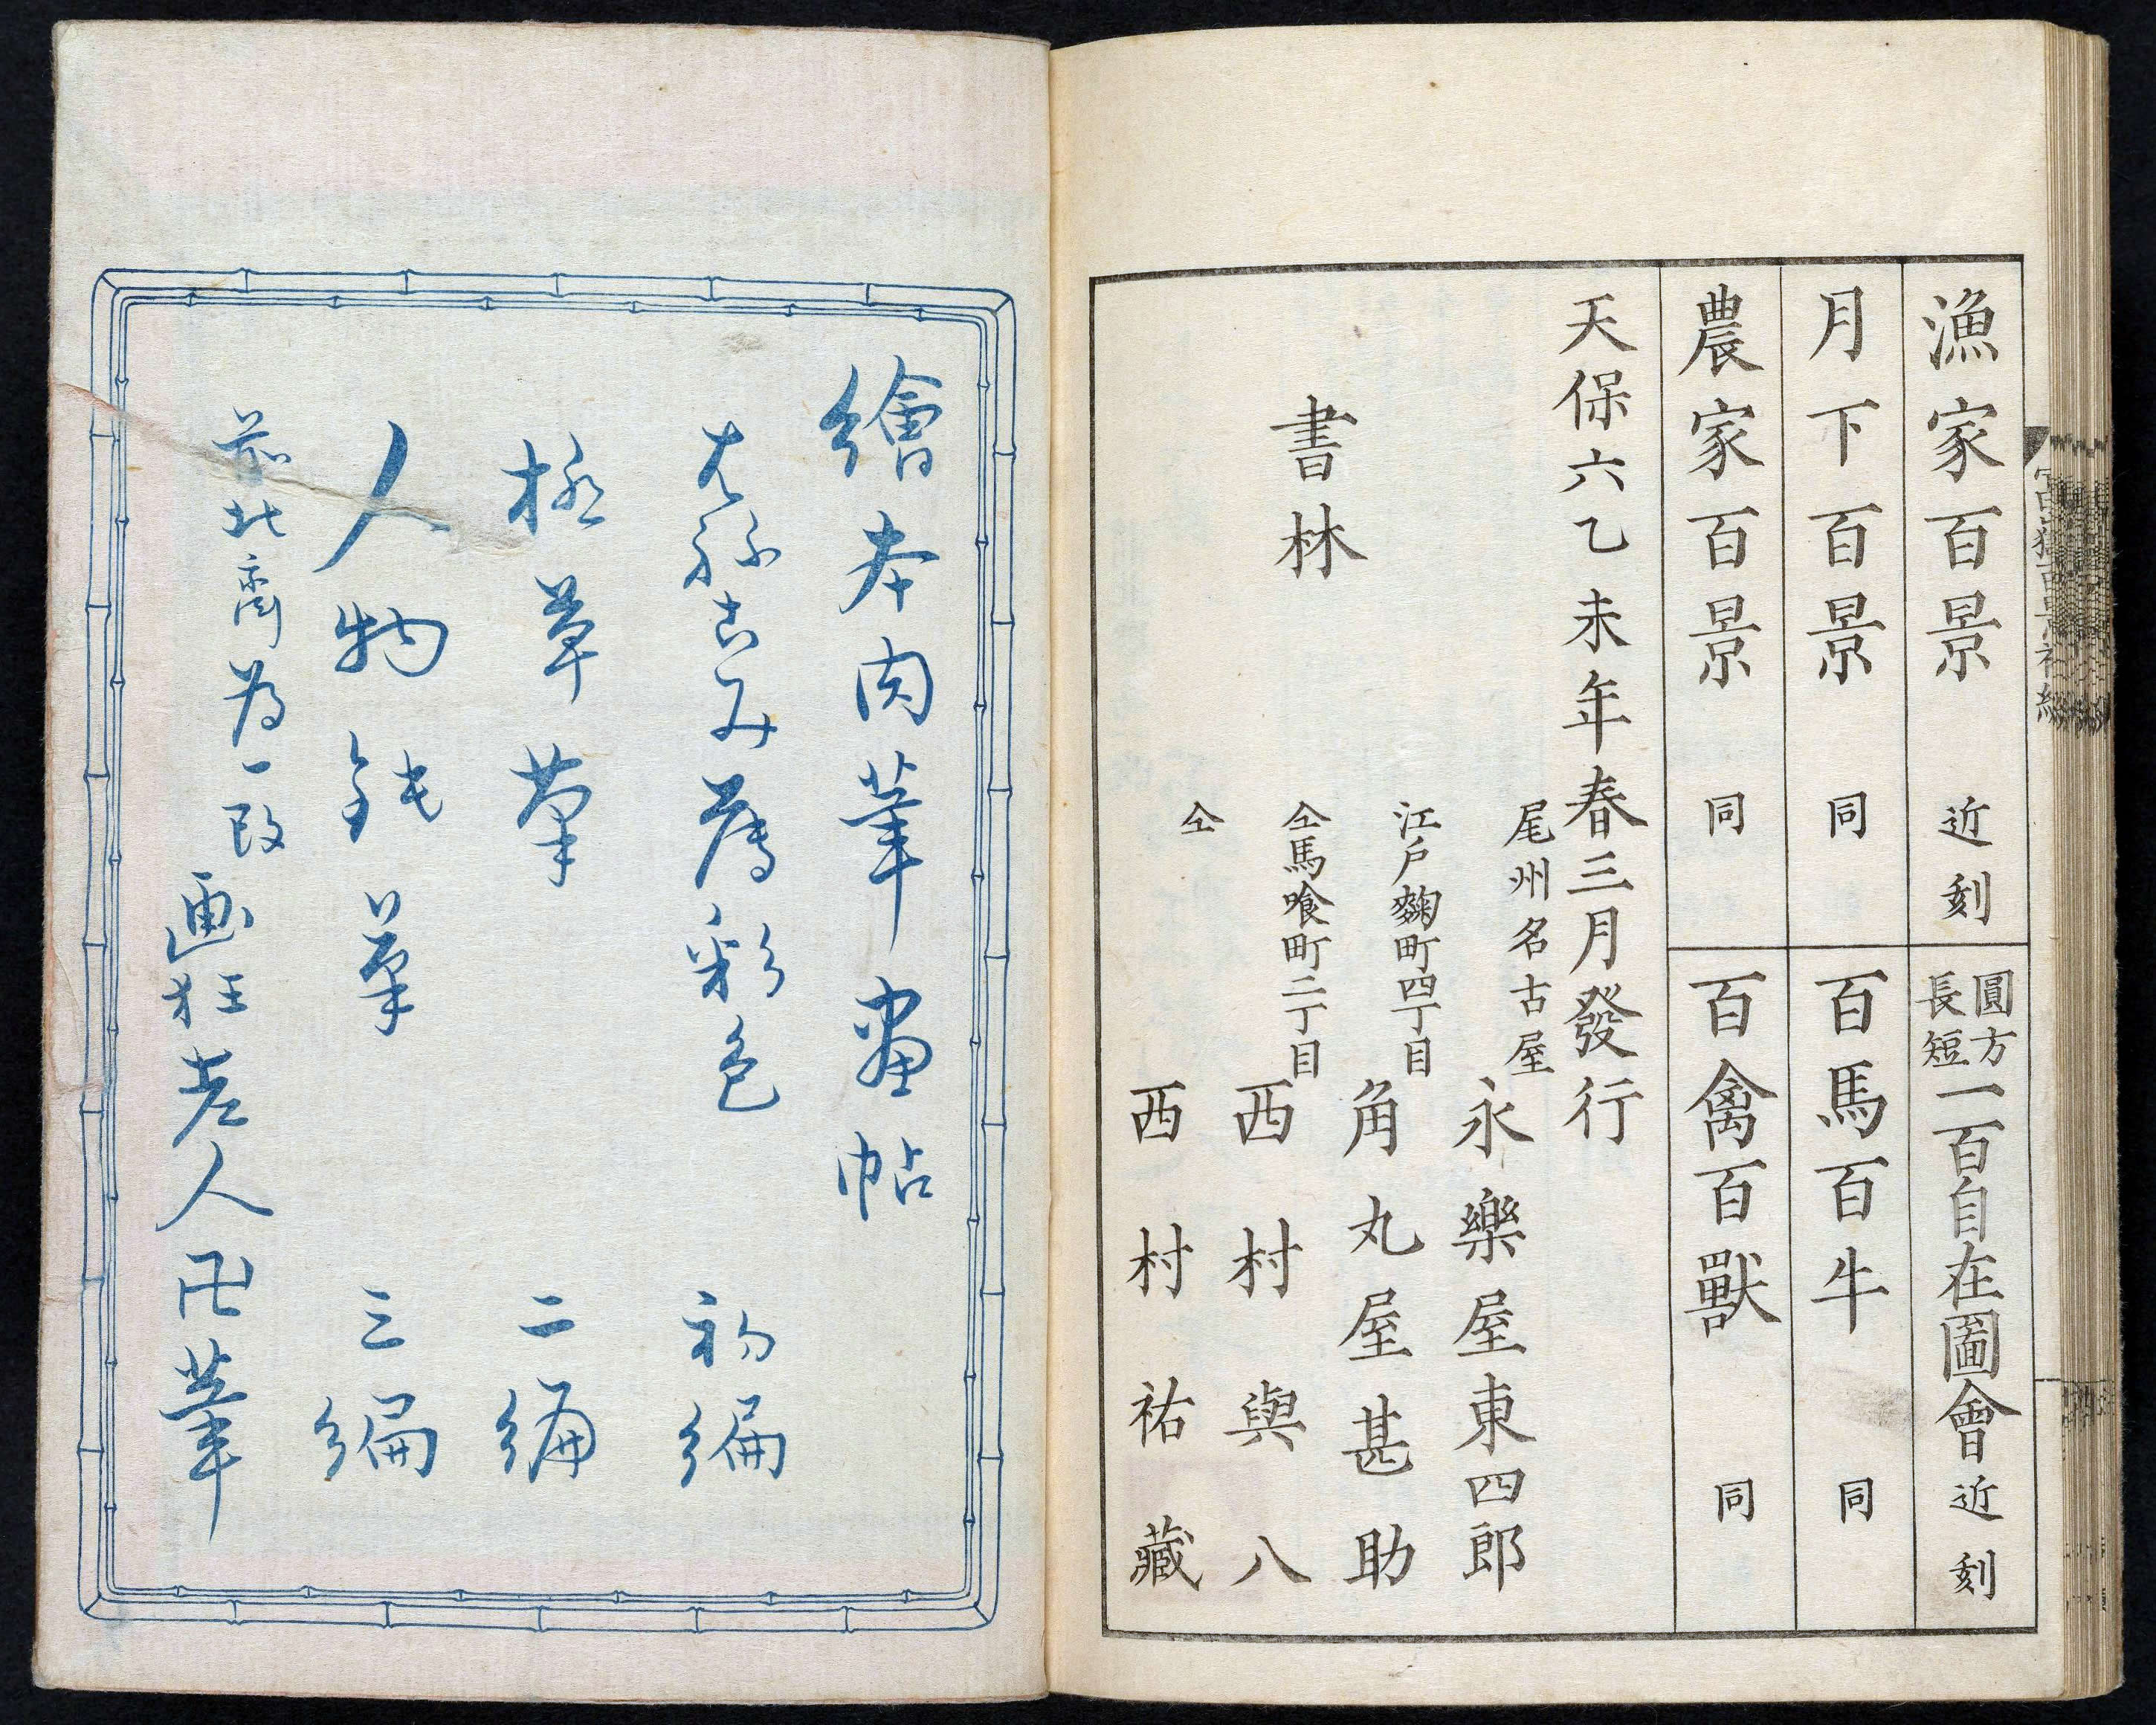 漁家百景 近刻
圓方
長短
一百自在圖會 近刻
月下百景 同
百馬百牛 同
農家百景 同
百禽百獸 同
天保六乙未年春三月發行
書林
尾州名古屋 永樂屋東四郎
江戸麴町四丁目 角丸屋甚助
仝馬喰町二丁目 西村與八
仝 西村祐藏
繪本肉筆畫帖
薄彩色 初編
極草筆 二編
人物鈍筆 三編
前北齋為一改 画狂老人卍筆